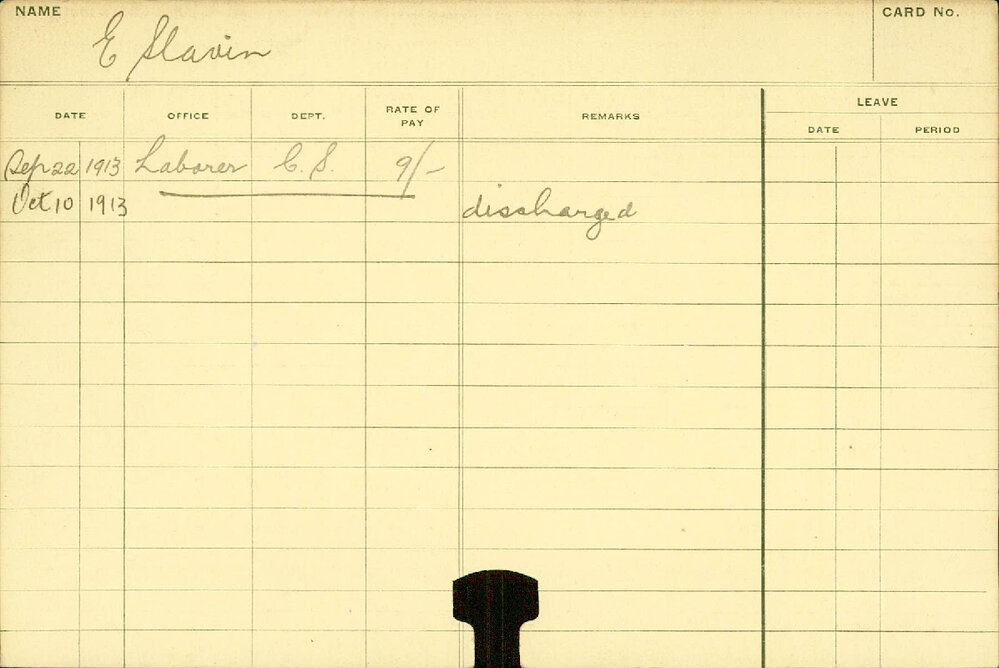 NAME
E Slavin
CARD No.
DATE OFFICE DEPT. RATE OF PAY REMARKS LEAVE
DATE PERIOD
Sep 22 1913 Laborer C.S. 9/-
Oct 10 1913 discharged